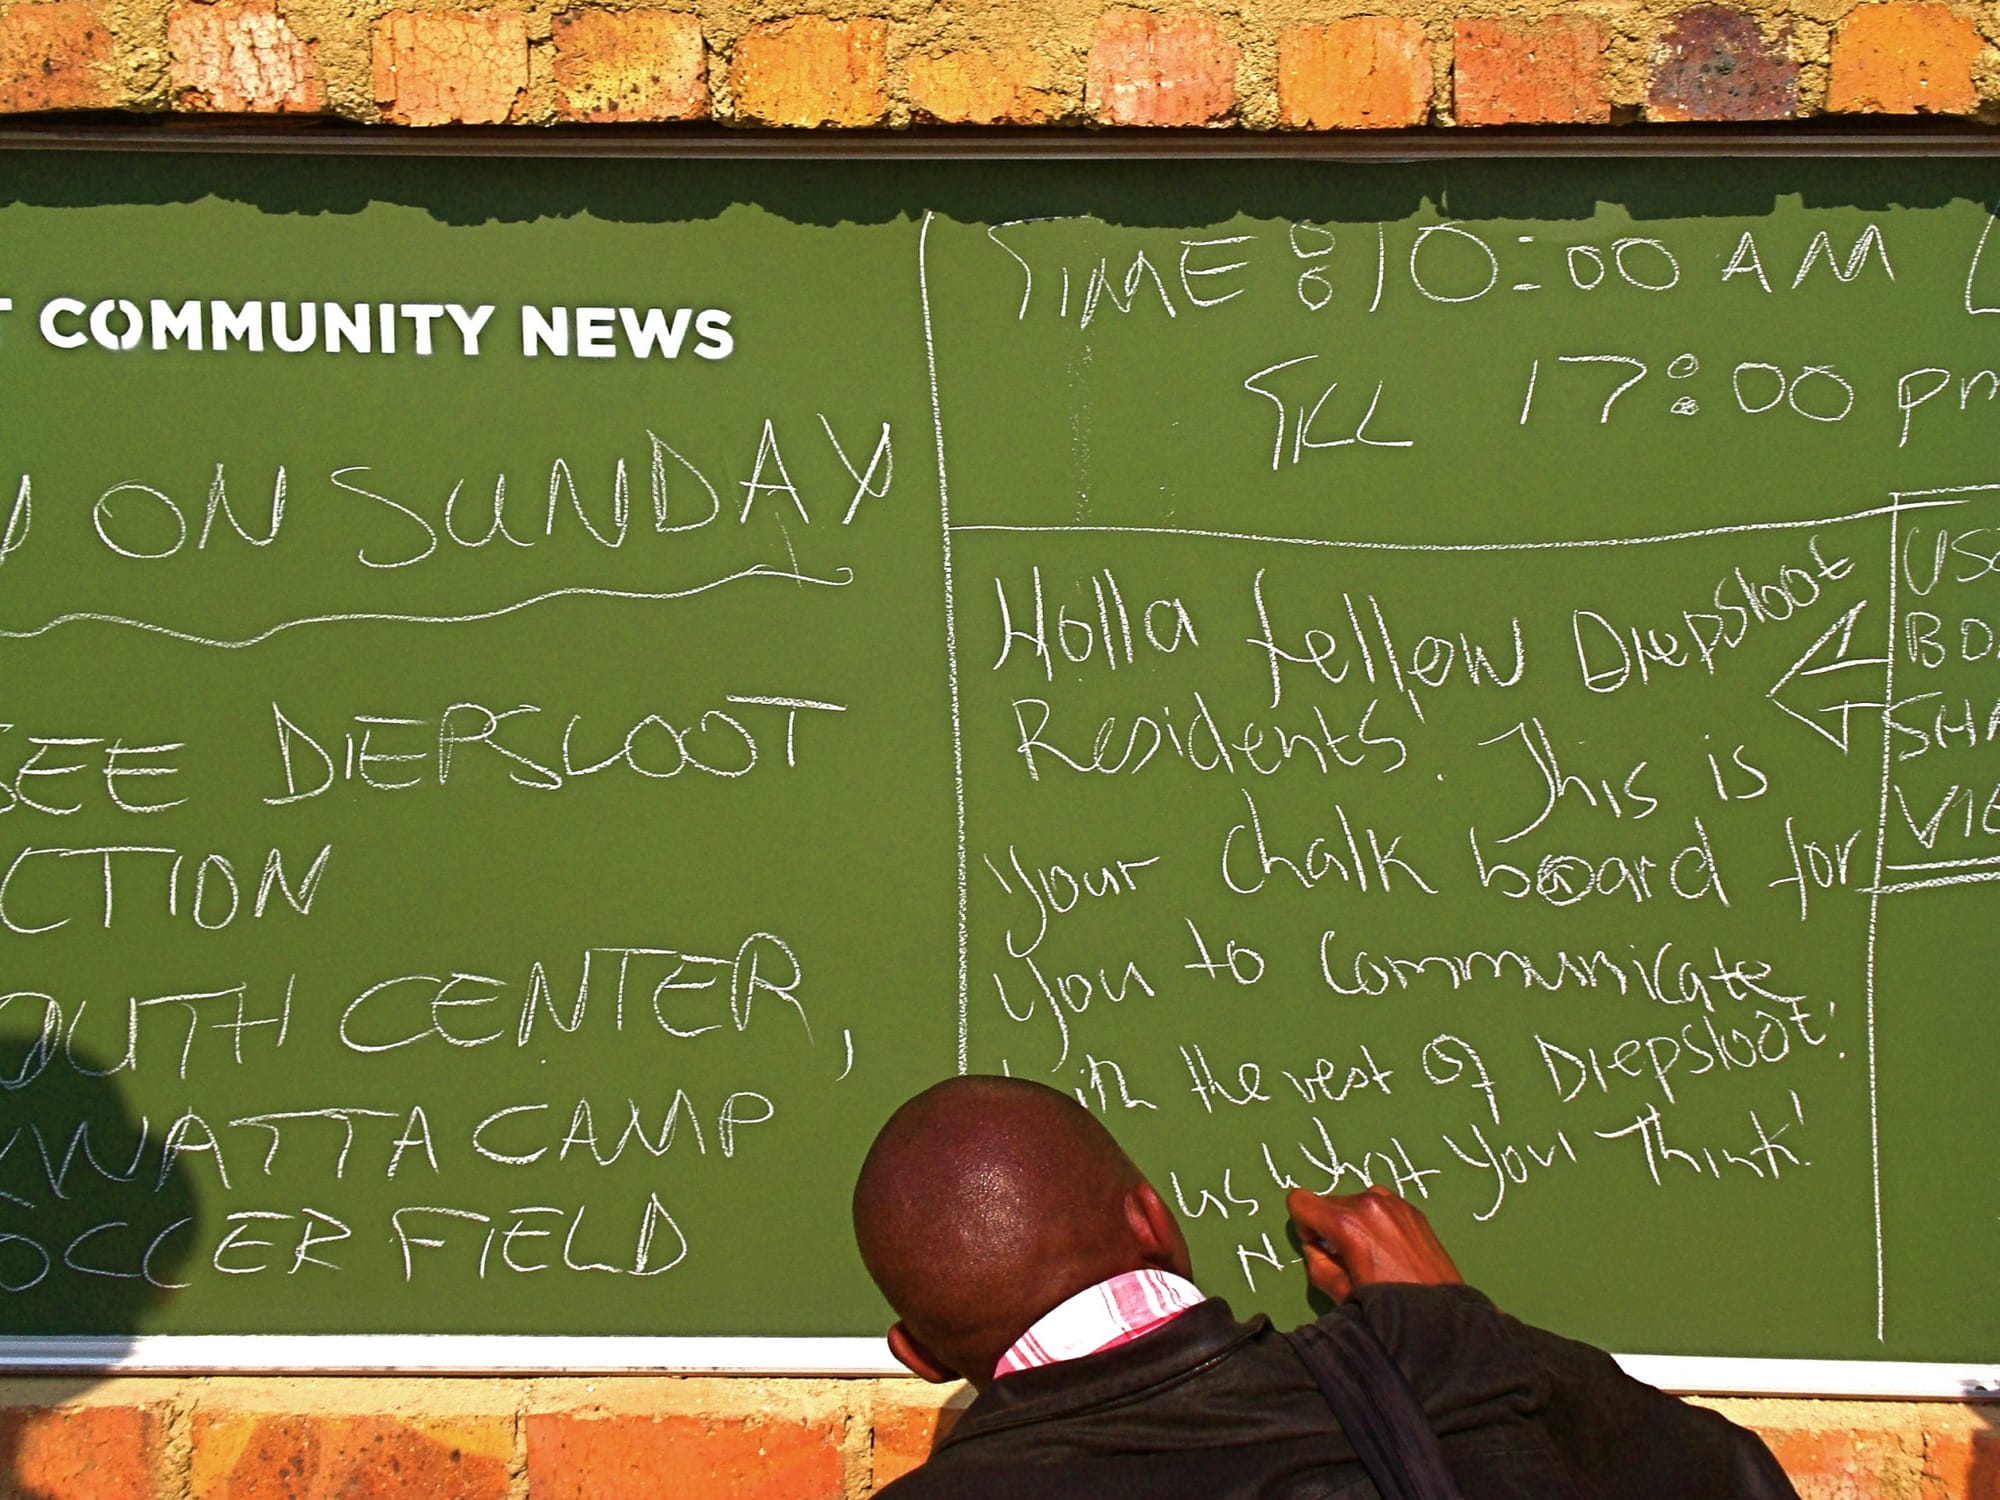 COMMUNITY NEWS
ON SUNDAY
SEE DIEPSLOOT
CTION
OUTH CENTER,
WATTA CAMP
OCCER FIELD
TIME: 10:00 AM
TILL 17:00 pm
Holla fellow Diepsloot
Residents. This is
Your chalk board for
You to communicate
with the rest of Diepsloot!
us What You Think!
N
USE
BOA
SHA
VIE